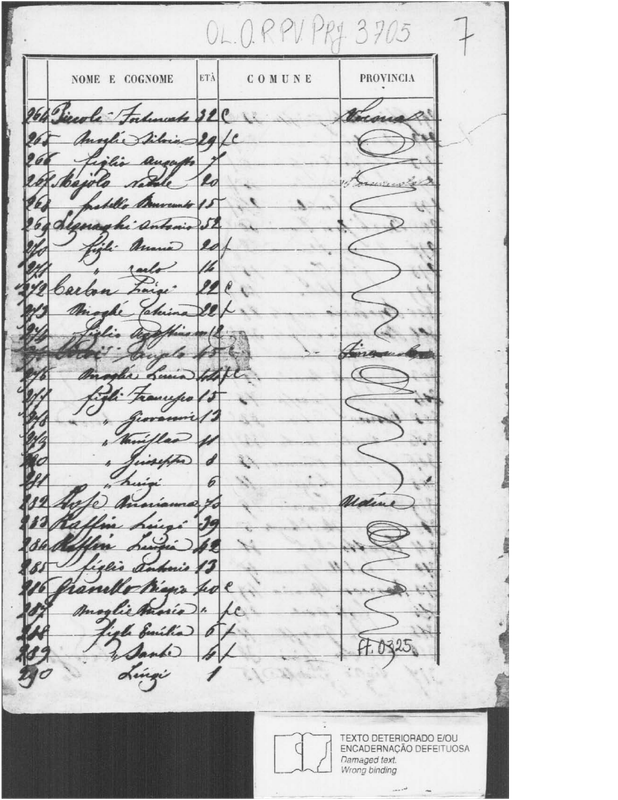 OL.O.RPV PPJ. 3705
7
NOME E COGNOME ETÀ COMUNE PROVINCIA
264 Piccoli Fortunato 32 c Verona
265 Moglie Silvia 29 f c
266 figlio Augusto 7
267 Majolo Natale 20
268 fratello Benvenuto 15
269 Antonio 52
270 figli Maria 20 f
271 " Carlo 16
272 Carlon Luigi 22 c
273 Moglie Caterina 22 f
274 figlio Agostino
Angelo 45
276 Moglie Lucia 44 f c
277 figli Francesco 15
278 " Giovanni 13
279 " 11
280 " Giuseppe 8
281 " Luigi 6
282 Marianna 70 Udine
283 Raffin Luigi 39
284 Raffin Luigia 42
285 figlio Antonio 13
286 Granello Biagio 40 c
287 Moglie Maria " f c
288 figli Emilia 6 f
289 " Sante 4 f
Ff. 0325
290 Luigi 1
TEXTO DETERIORADO E/OU
ENCADERNAÇÃO DEFEITUOSA
Damaged text.
Wrong binding